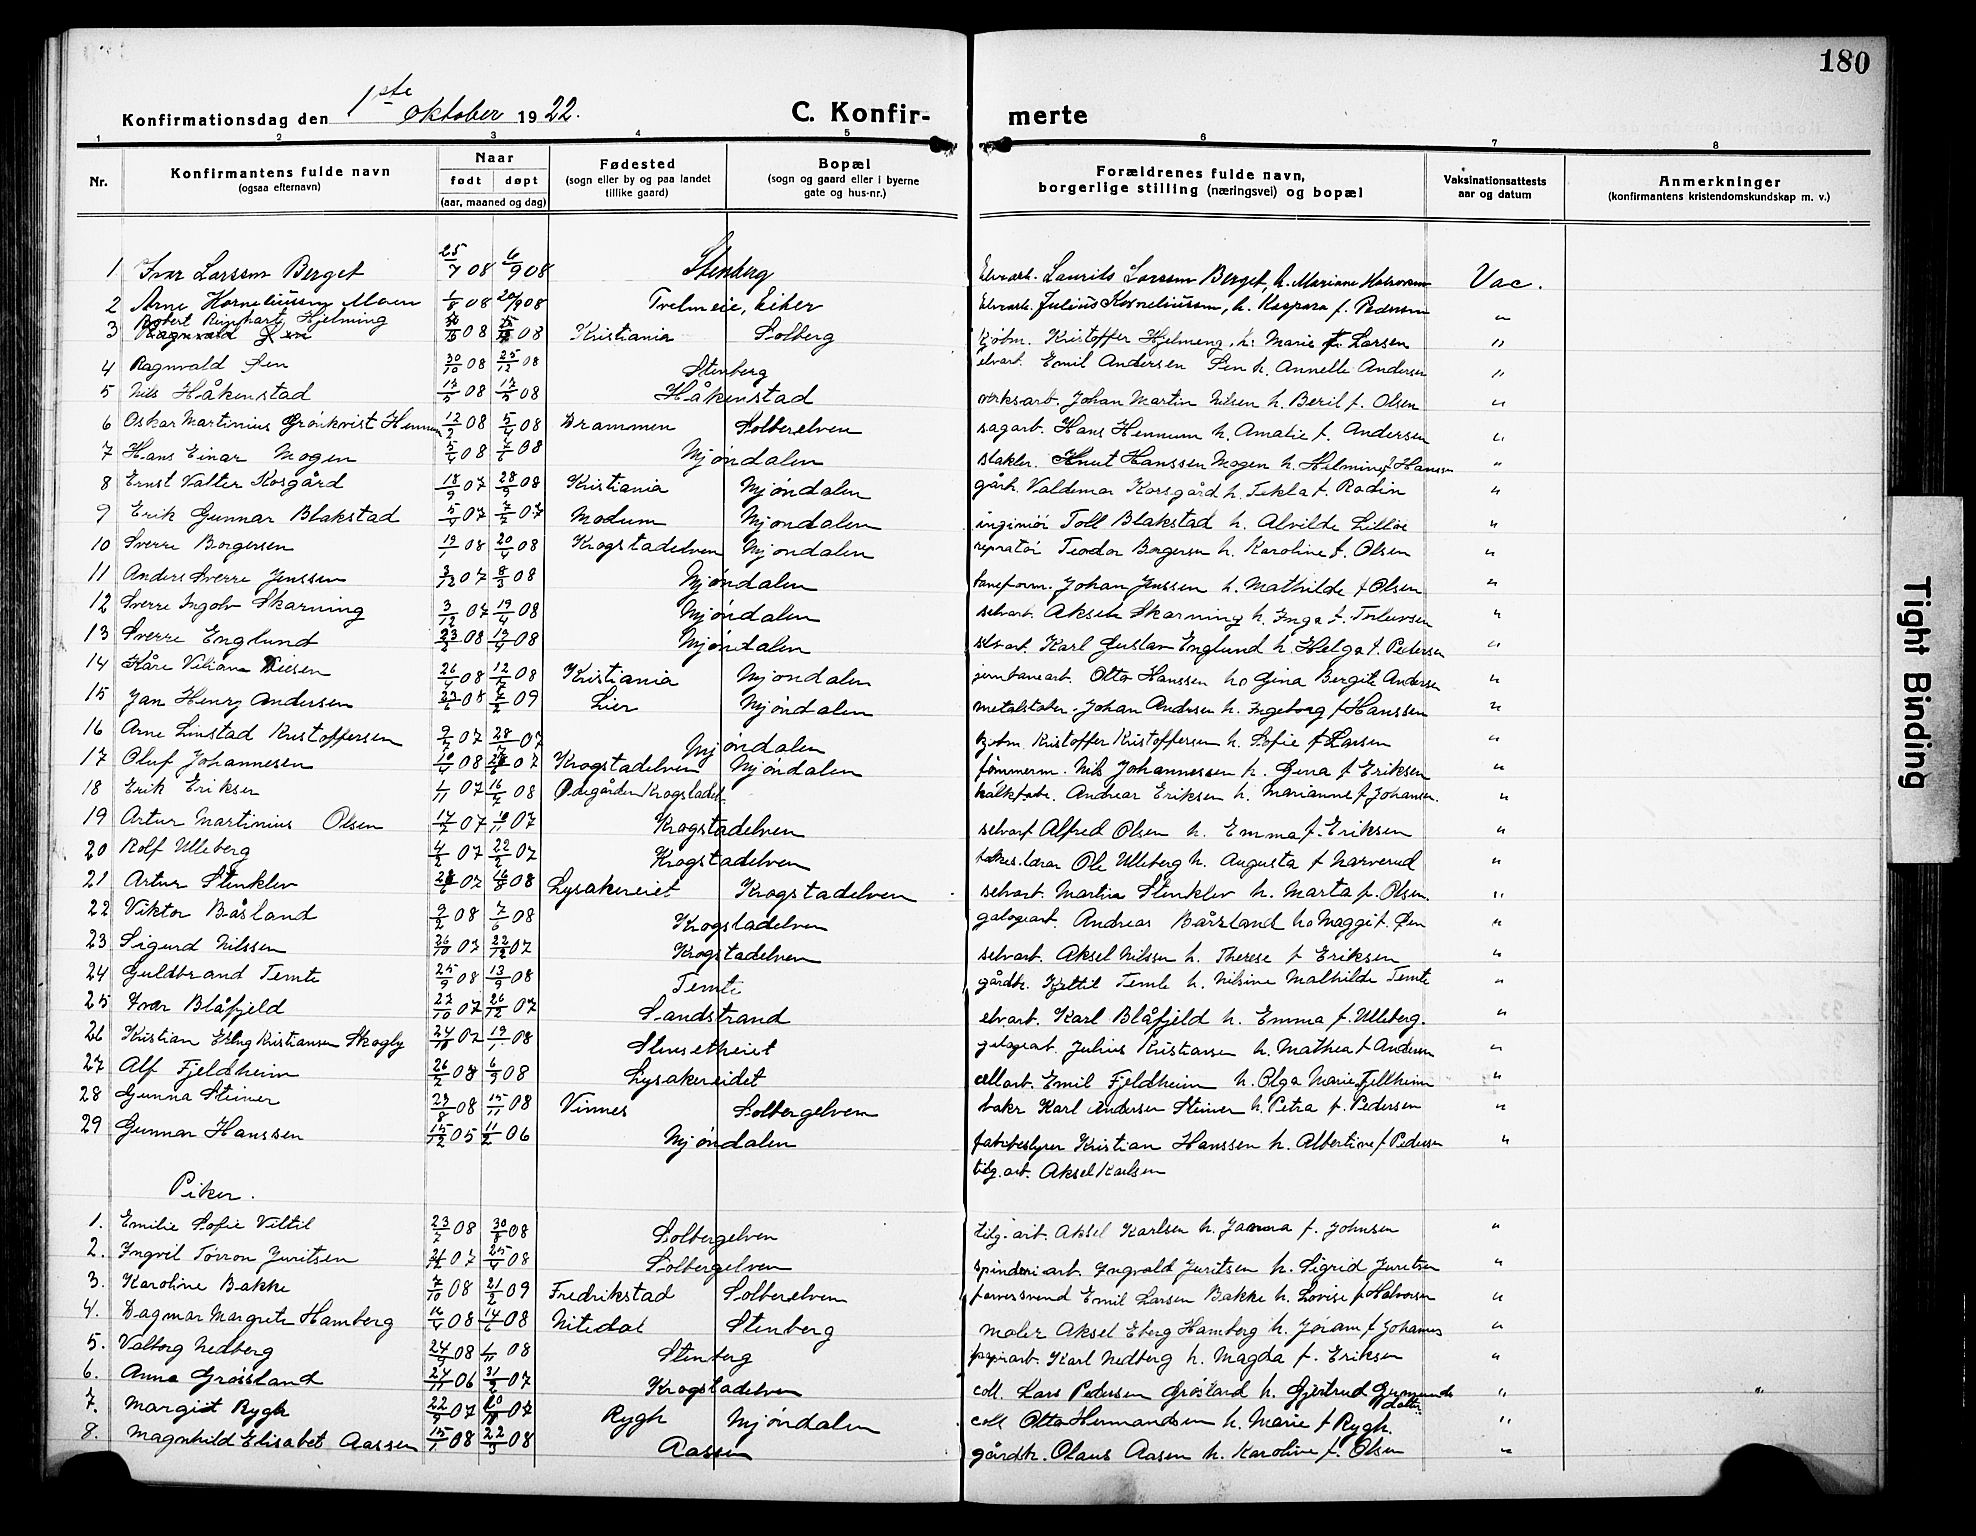 180
Konfirmationsdag den 1ste oktober 1922.
C. Konfirmerte
1 2 3 4 5 6 7 8
Nr. Konfirmantens fulde navn (ogsaa efternavn) Naar født døpt (aar, maaned og dag) Fødested (sogn eller by og paa landet tillike gaard) Bopæl (sogn og gaard eller i byerne gate og hus-nr.) Forældrenes fulde navn, borgerlige stilling (næringsvei) og bopæl Vaksinationsattests aar og datum Anmerkninger (konfirmantens kristendomskundskap m. v.)
1 Ivar Larssen Berget 25/7 08 6/9 08 Stenberg Elvearb. Laurits Larssen Berget, h. Mariane Vac.
2 Arne Korneliussen Moen 1/8 08 20/9 08 Tvelmeie, Eiker Elvearb. Julius Korneliussen, h. Kaspara f. Pedersen "
3 Robert Ringhart Hjelming 08 08 Kristiania Solberg kjøbm. Kristoffer Hjelmeng, h. Marie f. Larsen "
4 Ragnvald Sen 30/10 08 25/12 08 Stenberg elvarb. Emil Andersen Sen h. Annette Andersen "
5 Nils Håkenstad 08 08 Håkenstad verksarb. Johan Martin Nilsen h. Beril f. Olsen "
6 Oskar Martinius Grönkvist Hennum 12/2 08 5/4 08 Drammen Solberelven sagarb. Hans Hennum h. Amalie f. Andersen "
7 Hans Einar Mogen 5/4 08 7/6 08 Mjøndalen slakter. Knut Hanssen Mogen h. Helmine f Hanssen "
8 Ernst Valter Kosgård 18/9 07 28/9 08 Kristiania Mjöndalen gårh. Valdemar Korsgård h. Tekla f. Rodin "
9 Erik Gunnar Blakstad 07 07 Modum Mjöndalen ingeniör Toll Blakstad h. Alvilde Lilloe "
10 Sverre Borgersen 19/1 08 20/4 08 Krogstadelven Mjöndalen repratör Teodor Borgersen h. Karoline f. Olsen "
11 Anders Sverre Jenssen 3/12 07 8/3 08 Mjöndalen baneform. Johan Jenssen h. Mathilde f Olsen "
12 Sverre Ingolv Skarning 3/12 07 19/4 08 Mjöndalen selvarb. Aksel Skarning h. Inga f. "
13 Sverre Englund 23/2 08 19/4 08 Mjöndalen selvarb. Karl Gustav Englund h. Helga f. Pedersen "
14 Kåre Viliam 26/4 08 08 Kristiania Mjöndalen jernbanearb. Otto Hanssen h. Gina Bergite Andersen "
15 Jan Henry Andersen 08 09 Lier Mjöndalen metalstøber. Johan Andersen h. Ingeborg f Hanssen "
16 Arne Linstad Kristoffersen 07 07 Mjöndalen kjøbm. Kristoffer Kristoffersen h. Sofie f Larsen "
17 Oluf Johannesen 08 07 Krogstadelven Mjöndalen tømmerm. Nils Johannessen h. Gina f Eriksen "
18 Erik Eriksen 1/11 07 16/7 08 Ödegården Krogstadel. kalkfabr. Andreas Eriksen h. Marianne f Johansen. "
19 Artur Martinius Olsen 07 07 Krogstadelven selvarb Alfred Olsen h. Emma f. Eriksen "
20 Rolf Ulleberg 4/2 07 22/2 07 Krogstadelven Ole Ulleberg h. Augusta f Narverud "
21 Artur Stenklev 07 16/8 08 Lysakereiet Krogstadelven selvarb. Martin Stenklev h. Marta f. Olsen. "
22 Viktor Båsland 9/2 08 7/6 08 Krogstadelven galogearb. Andreas Bårsland h. Maggi f. "
23 Sigurd Nilssen 26/10 07 22/12 07 Krogstadelven selvarb. Aksel Nilssen h. Therese f Eriksen "
24 Guldbrand Temte 08 13/9 08 Temte gårdbr. Kjettil Temte h. Nilsine Mathilde Temte "
25 Ivar Blåfjeld 27/10 07 26/12 07 Sandstrand elvarb. Karl Blåfjeld h. Emma f. Ulleberg. "
26 Kristian Erling Kristiansen Skogly 07 19/1 08 Stensetheiet galogearb. Julius Kristiansen h. Mathea f Andersen "
27 Alf Fjeldheim 26/2 08 6/9 08 Lysakereidet cellarb. Emil Fjeldheim h. Olga Marie Fjellheim "
28 Gunna Steiner 29/8 08 15/11 08 Vinnes Solbergelven bakr Karl Andersen Steiner h. Petra f. Pedersen "
29 Gunnar Hanssen 15/12 05 11/2 06 Mjöndalen fabrbestyrer Kristian Hanssen h. Albertine f Pedersen "
tilg. arb. Aksel Karlsen
Piker.
1. Emilie Sofie Veltil 23/7 08 30/8 08 Solbergelven tilg. arb. Aksel Karlsen h. Janna f. Johnsen "
2. Ingvil Torron Juritsen 07 25/4 08 Solbergelven spinderiarb. Ingvald Juritsen h. Sigrid Juritsen "
3. Karoline Bakke 7/10 08 21/2 09 Fredrikstad Solberelven farversvend Emil Larsen Bakke h. Lovise f Halvorsen "
4. Dagmar Margrete Hamberg 08 14/6 08 Nitedal Stenberg maler Aksel Eberg Hamberg h. f Johannes "
5. Valborg Nedberg 24/9 08 1/11 08 Stenberg papirarb. Karl Nedberg h. Magda f. Eriksen "
6. Anna Grøsland 27/11 06 31/2 07 Krogstadelven cell. Lars Pedersen Grøsland h. Gjertrud Germunds datter " "
7. Margit Rygh 22/9 07 07 Rygh Mjöndalen cell Otto Hermandsen h. Marie f Rygh. "
8. Magnhild Elisabet Aassen 15/1 08 22/3 08 Aassen gårdbr. Olaus Aasen h. Karoline f. Olsen "
Tight Binding